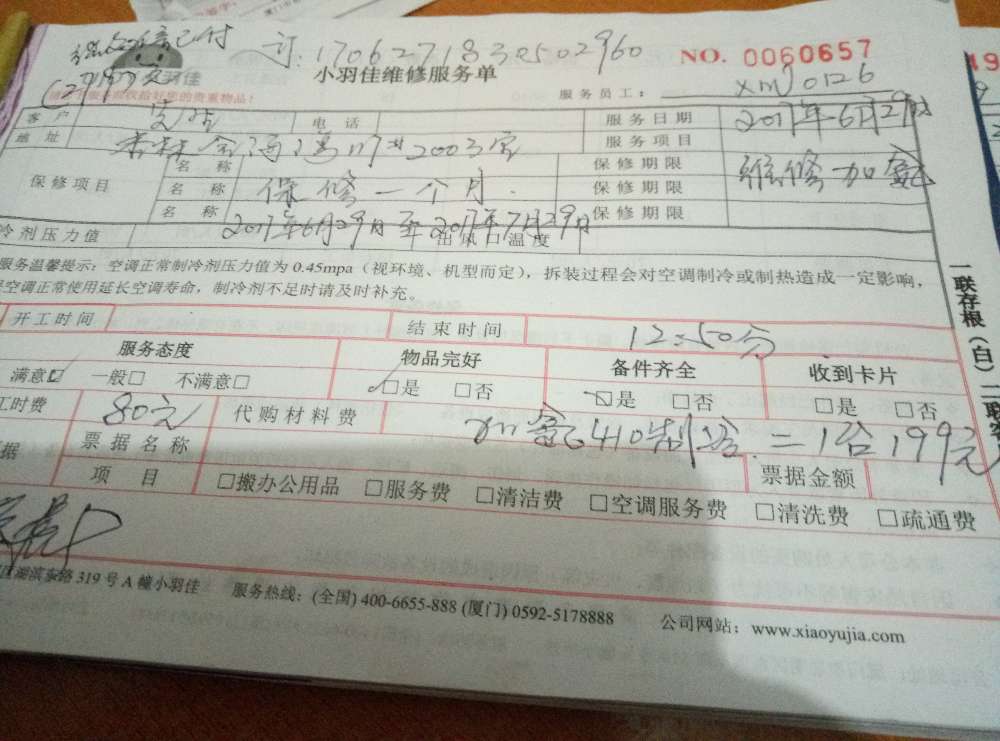 已付
订:170627183502960
NO. 0060657
小羽佳维修服务单
服务员工: xm0126
客户
电话
服务日期 2017年6月29日
地址 2003室
服务项目 维修加氨
保修项目
名称
保修期限
名称 保修一个月.
保修期限
名称
保修期限
冷剂压力值 2017年6月29日至2017年7月29日
出风口温度
服务温馨提示:空调正常制冷剂压力值为0.45mpa(视环境、机型而定),拆装过程会对空调制冷或制热造成一定影响,
空调正常使用延长空调寿命,制冷剂不足时请及时补充。
开工时间
结束时间 12:50分
服务态度
物品完好
备件齐全
收到卡片
满意☑ 一般□ 不满意□
☑是 □否
☑是 □否
□是 □否
工时费 80元
代购材料费
410制 = 1台199元
据
票据名称
票据金额
项目
□搬办公用品 □服务费 □清洁费 □空调服务费 □清洗费 □疏通费
湖滨东路319号A幢小羽佳
服务热线:(全国) 400-6655-888 (厦门) 0592-5178888
公司网站:www.xiaoyujia.com
一联存根(白)二联客